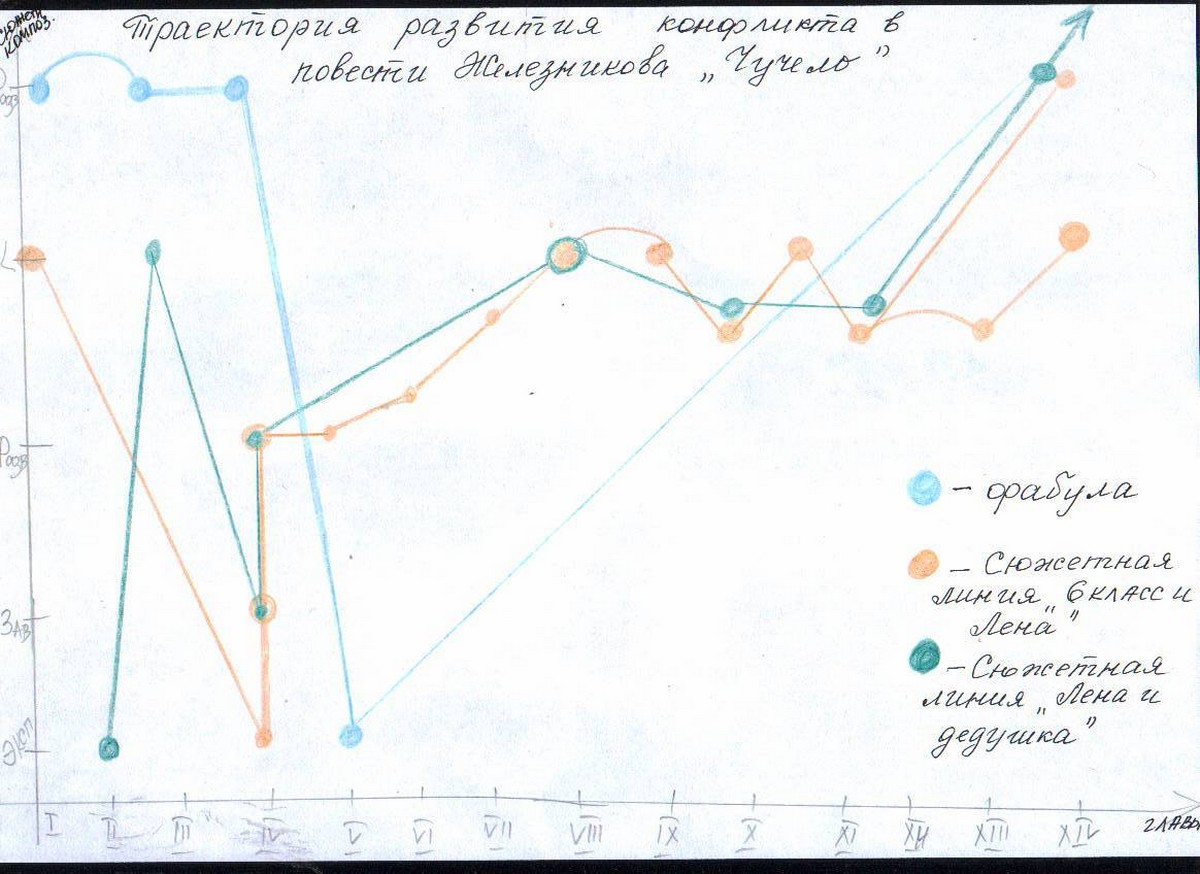 сюжетн.
композ.
Траектория развития конфликта в
повести Железникова „Чучело”
Разв
Зав
Эксп
- фабула
- Сюжетная
линия „6 класс и
Лена”
- Сюжетная
линия „Лена и
дедушка”
I II III IV V VI VII VIII IX X XI XII XIII XIV главы